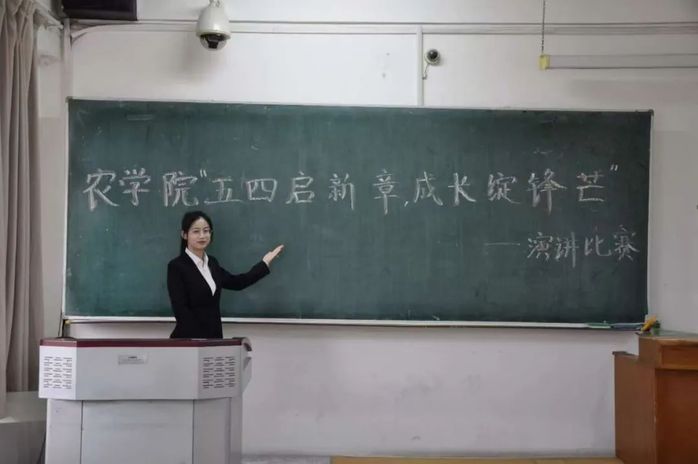 农学院“五四启新章,成长绽锋芒”
——演讲比赛